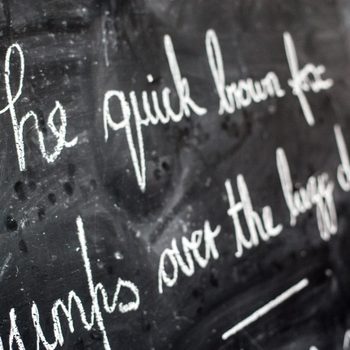 he quick brown fox
umps over the lazy d